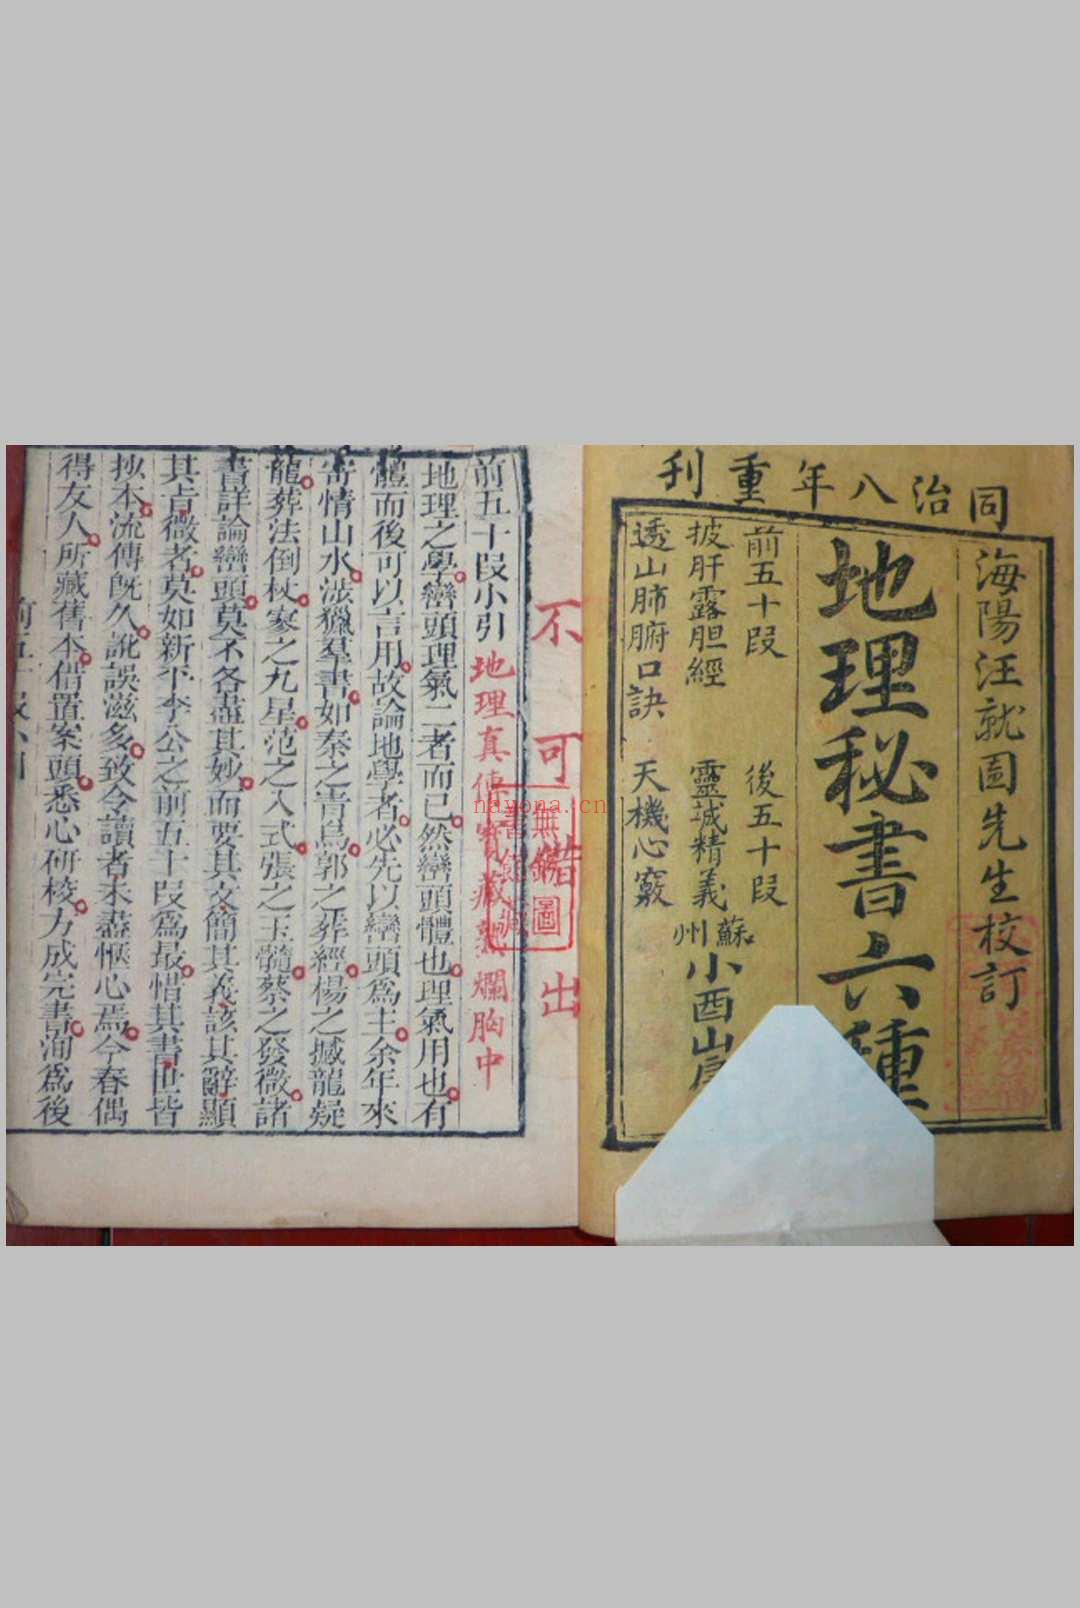 同治八年重刊
海陽汪就圖先生校訂
地理秘書六種
前五十段 後五十段
披肝露胆經 靈城精義
透山肺腑口訣 天機心竅
蘇州
小酉山房
不可借出
前五十段小引
地理真傳寶藏熟爛胸中
地理之學巒頭理氣二者而已然巒頭體也理氣用也有
體而後可以言用故論地學者必先以巒頭為主余年來
寄情山水涉獵羣書如秦之青烏郭之葬經楊之撼龍疑
龍葬法倒杖寥之九星范之八式張之玉髓蔡之發微諸
書詳論巒頭莫不各盡其妙而要其文簡其義該其辭顯
其㫖微者莫如新平李公之前五十段為最惜其書世皆
抄本流傳旣久訛誤滋多致令讀者未盡愜心焉今春偶
得友人所藏舊本借置案頭悉心研校方成完書洵為後
nayona.cn